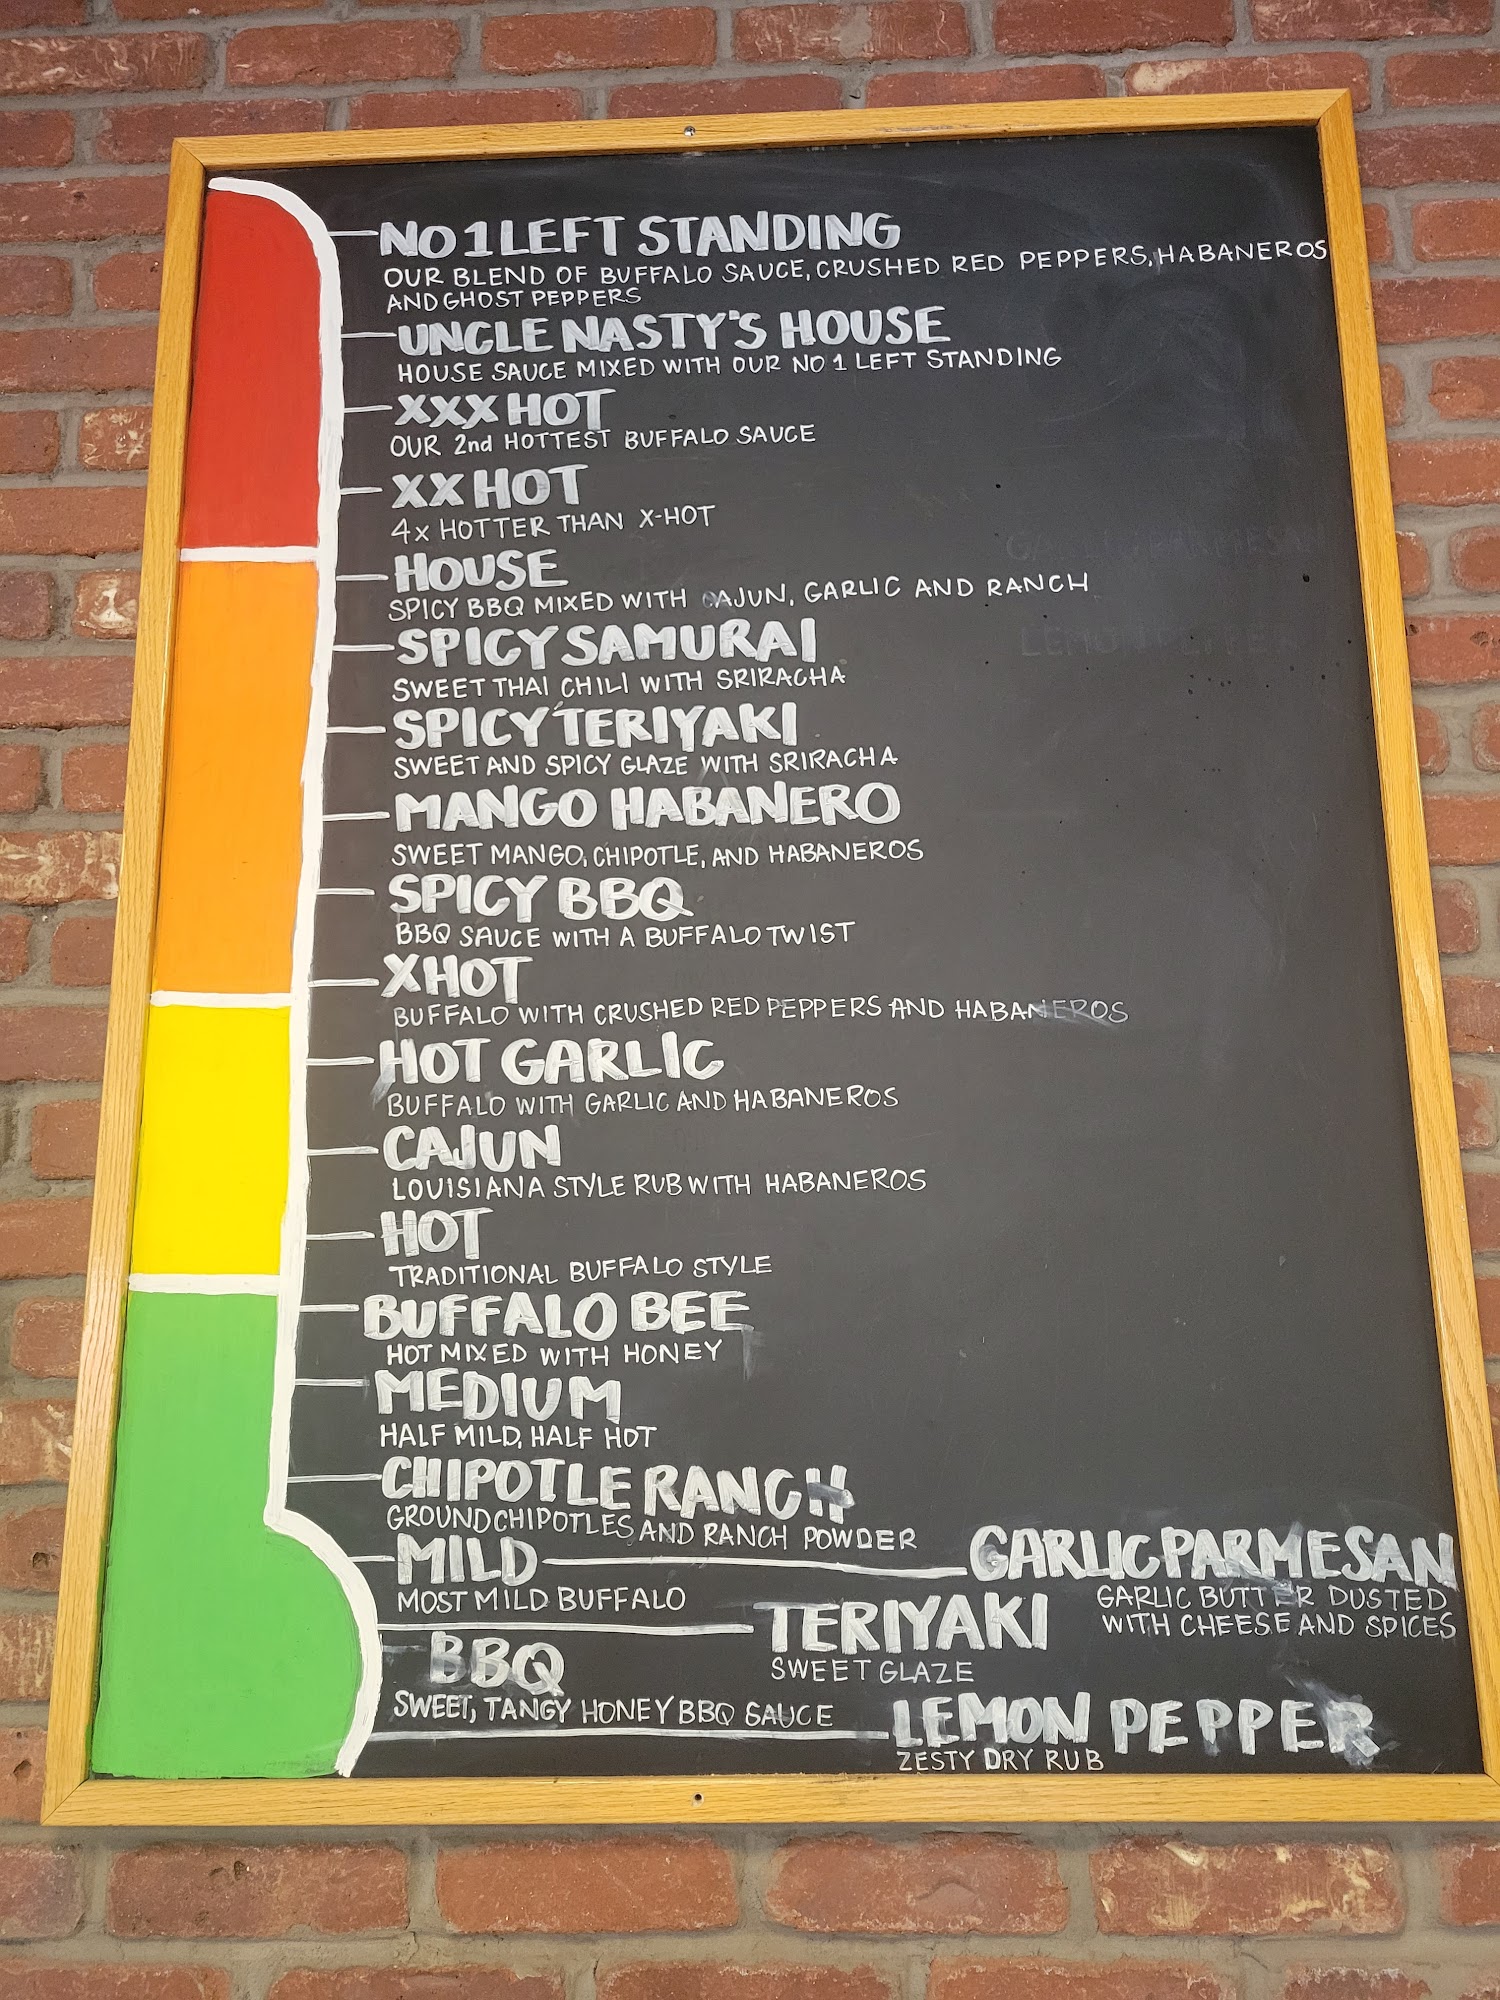 NO 1 LEFT STANDING
OUR BLEND OF BUFFALO SAUCE, CRUSHED RED PEPPERS, HABANEROS
AND GHOST PEPPERS
UNCLE NASTY'S HOUSE
HOUSE SAUCE MIXED WITH OUR NO 1 LEFT STANDING
XXX HOT
OUR 2nd HOTTEST BUFFALO SAUCE
XX HOT
4x HOTTER THAN X-HOT
HOUSE
SPICY BBQ MIXED WITH CAJUN, GARLIC AND RANCH
SPICY SAMURAI
SWEET THAI CHILI WITH SRIRACHA
SPICY TERIYAKI
SWEET AND SPICY GLAZE WITH SRIRACHA
MANGO HABANERO
SWEET MANGO, CHIPOTLE, AND HABANEROS
SPICY BBQ
BBQ SAUCE WITH A BUFFALO TWIST
XHOT
BUFFALO WITH CRUSHED RED PEPPERS AND HABANEROS
HOT GARLIC
BUFFALO WITH GARLIC AND HABANEROS
CAJUN
LOUISIANA STYLE RUB WITH HABANEROS
HOT
TRADITIONAL BUFFALO STYLE
BUFFALO BEE
HOT MIXED WITH HONEY
MEDIUM
HALF MILD, HALF HOT
CHIPOTLE RANCH
GROUND CHIPOTLES AND RANCH POWDER
MILD
MOST MILD BUFFALO
GARLIC PARMESAN
GARLIC BUTTER DUSTED
WITH CHEESE AND SPICES
TERIYAKI
SWEET GLAZE
BBQ
SWEET, TANGY HONEY BBQ SAUCE
LEMON PEPPER
ZESTY DRY RUB